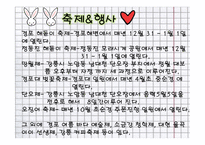 축제&행사
경포 해돋이 축제-경포해변에서 매년 12월 31 - 1월 1일에 열린다.
정동진 해돋이 축제-정동진 모래시계 공원에서 매년 12월 31 - 1월 1일에 열린다.
정월 - 강릉시 노암동 남대천 단오장 부지에서 정월 대보름 오후부터 자정 까지 세 과정으로 이루어진다.
경포대 벚꽃축제-경포대 일원에서 매년 4월초, 중순경 에 열린다.
단오제 - 강릉시 노암동 남대천 단오장에서 음력5월5일을 전후로 해서 8일간이루어 진다.
오징어 축제 - 매년 주문진
그 외에 경포 여름 바다 예술제, 소금강 청학제, 대현 율곡 이이 선생제, 강릉 커피축제등이 있다.